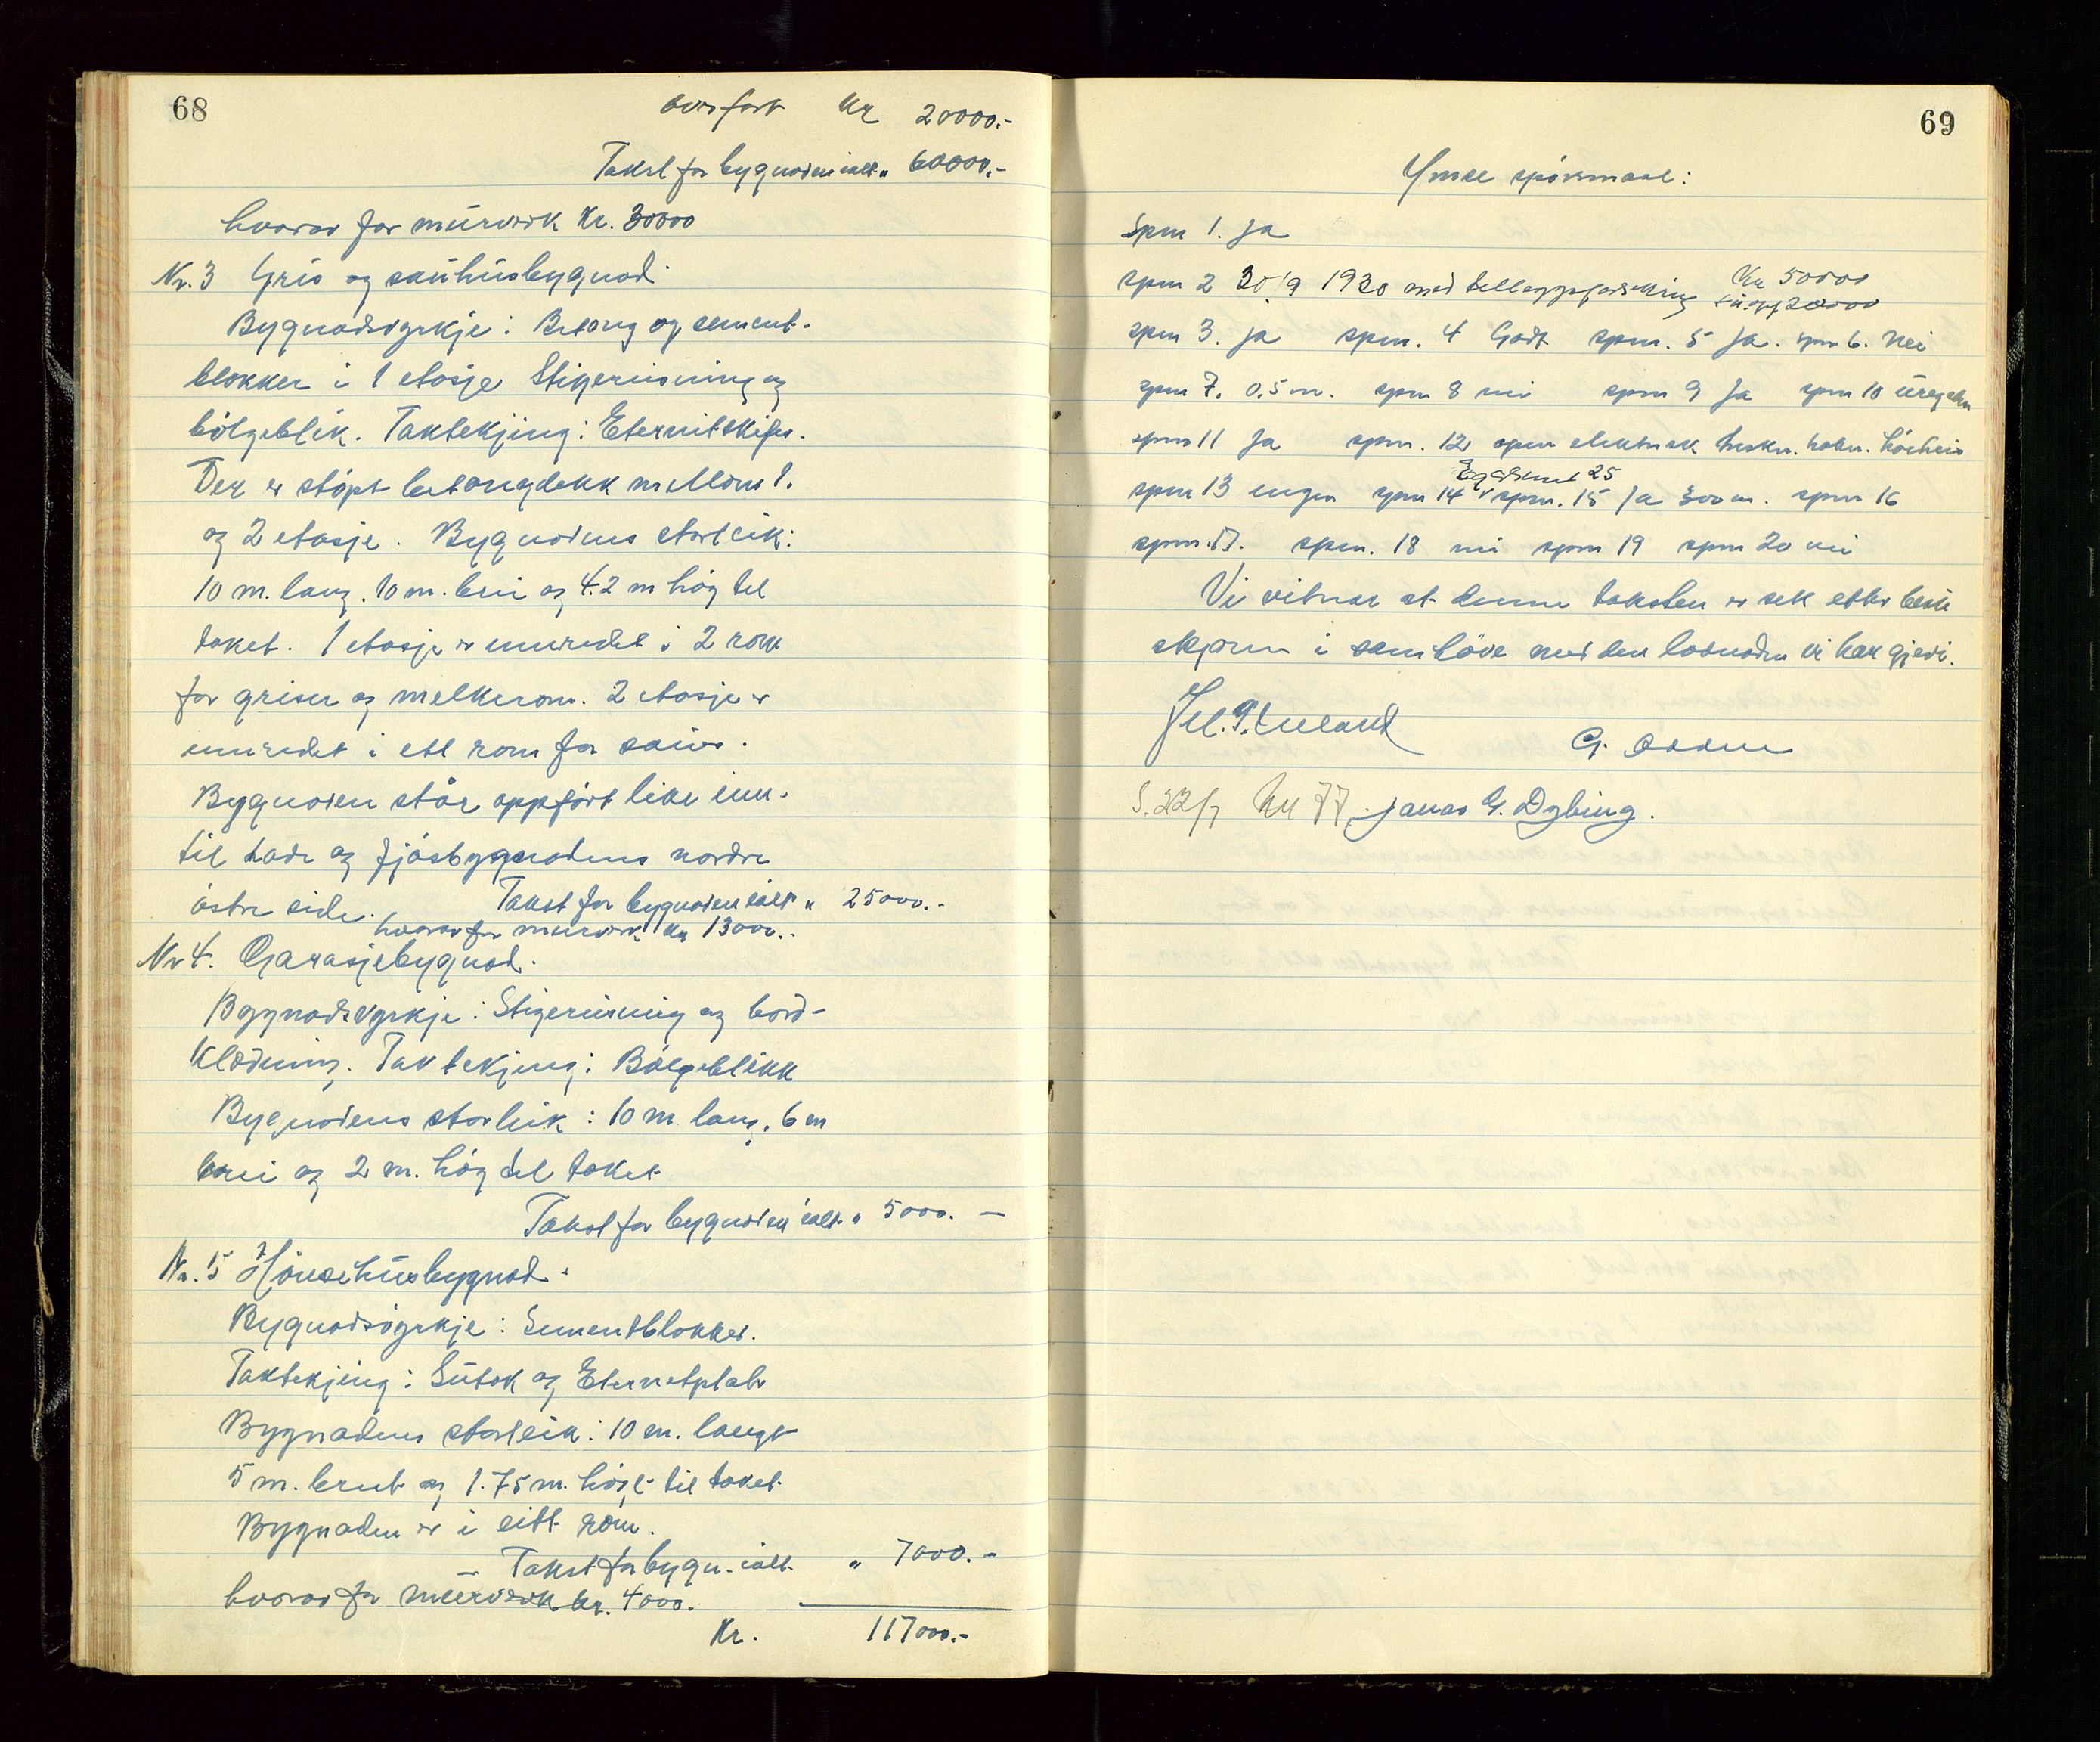 68
overført Kr 20000.-
Takst for bygnaden ialt " 60000.-
hvorav for murverk Kr. 30000
Nr. 3 Gris og sauhusbygnad.
Bygnadsvyrkje: Betong og sement-
blokker i 1 etasje Stigereisning og
bølgeblik. Taktekjing: Eternitskifer.
Der er støpt betongdekk mellom 1.
og 2 etasje. Bygnadens storleik:
10 m. lang. 10 m. brei og 4.2 m høg til
taket. 1 etasje er innredet i 2 rom
for griser og melkerom. 2 etasje er
innredet i ett rom for sauer.
Bygnaden står oppført like inn-
til løde og fjøsbygnadens nordre
østre side. Takst for bygnaden ialt " 25000.-
hvorav for murverk kr 13000.-
Nr 4. Garasjebygnad.
Bygnadsvyrkje: Stigereisning og bord-
klædning. Taktekjing: Bølgeblikk
Bygnadens storleik: 10 m lang, 6 m
brei og 2 m. høg til taket
Takst for bygnaden ialt " 5000. -
Nr. 5 Hønsehusbygnad.
Bygnadsvyrkje: Sementblokker.
Taktekjing: Sutak og Eternitplater
Bygnadens storleik: 10 m. langt
5 m. breit og 1.75 m. høgt til taket
Bygnaden er i eitt rom.
Takst for bygn. ialt " 7000.-
hvorav for murverk kr. 4000.
Kr. 117000.-
69
Ymse spörsmaal:
Spm 1. Ja
spm 2 30/9 1930 med tilleggsforsikring Kr 50000
20000
spm 3. ja spm. 4 Godt spm. 5 Ja. spm 6. Nei
spm 7. 0.5 m. spm 8 nei spm 9 Ja spm 10 uregelm
spm 11 Ja spm. 12 open elektrisk høiheis
spm 13 ingen spm 14 Egersund 25 spm. 15 Ja 300 m. spm 16
spm. 17. spm. 18 nei spm 19 spm 20 nei
Vi vitnar at denne taksten er sett etter beste
skjønn i samhöve med den lovnaden vi har gjevi.
G. Odden
S. 22/7 77 Jonas G. Dybing.